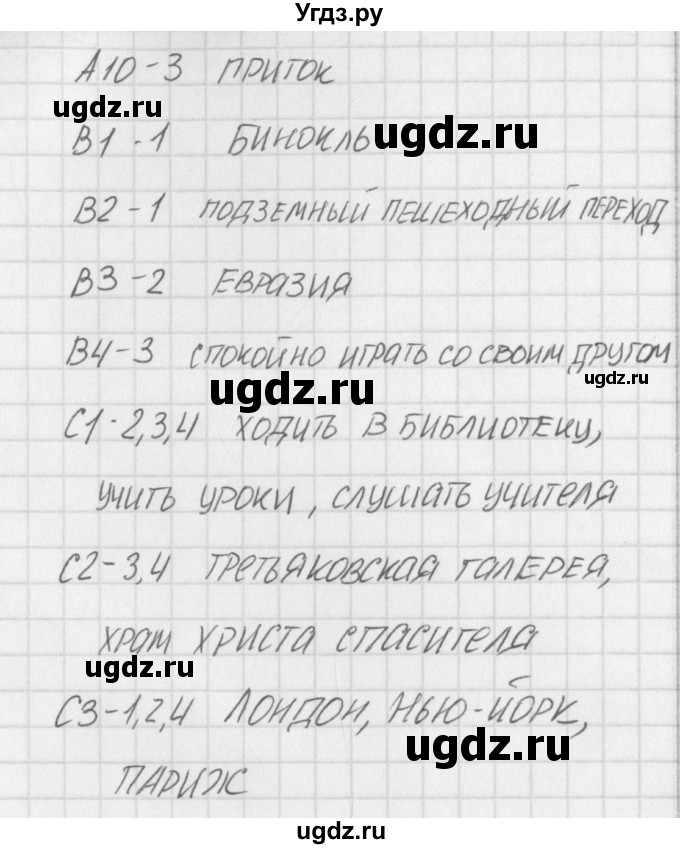 Угдз.ру
А10-3 ПРИТОК
ugdz.ru
В1-1 БИНОКЛЬ ugdz.ru
В2-1 ПОДЗЕМНЫЙ ПЕШЕХОДНЫЙ ПЕРЕХОД
В3-2 ЕВРАЗИЯ
В4-3 СПОКОЙНО ИГРАТЬ СО СВОИМ ДРУГОМ
ugdz.ru ugdz.ru
С1-2,3,4 ХОДИТЬ В БИБЛИОТЕКУ,
УЧИТЬ УРОКИ, СЛУШАТЬ УЧИТЕЛЯ
ugdz.ru
С2-3,4 ТРЕТЬЯКОВСКАЯ ГАЛЕРЕЯ,
ХРАМ ХРИСТА СПАСИТЕЛЯ
ugdz.ru
С3-1,2,4 ЛОНДОН, НЬЮ-ЙОРК,
ugdz.ru
ПАРИЖ
ugdz.ru